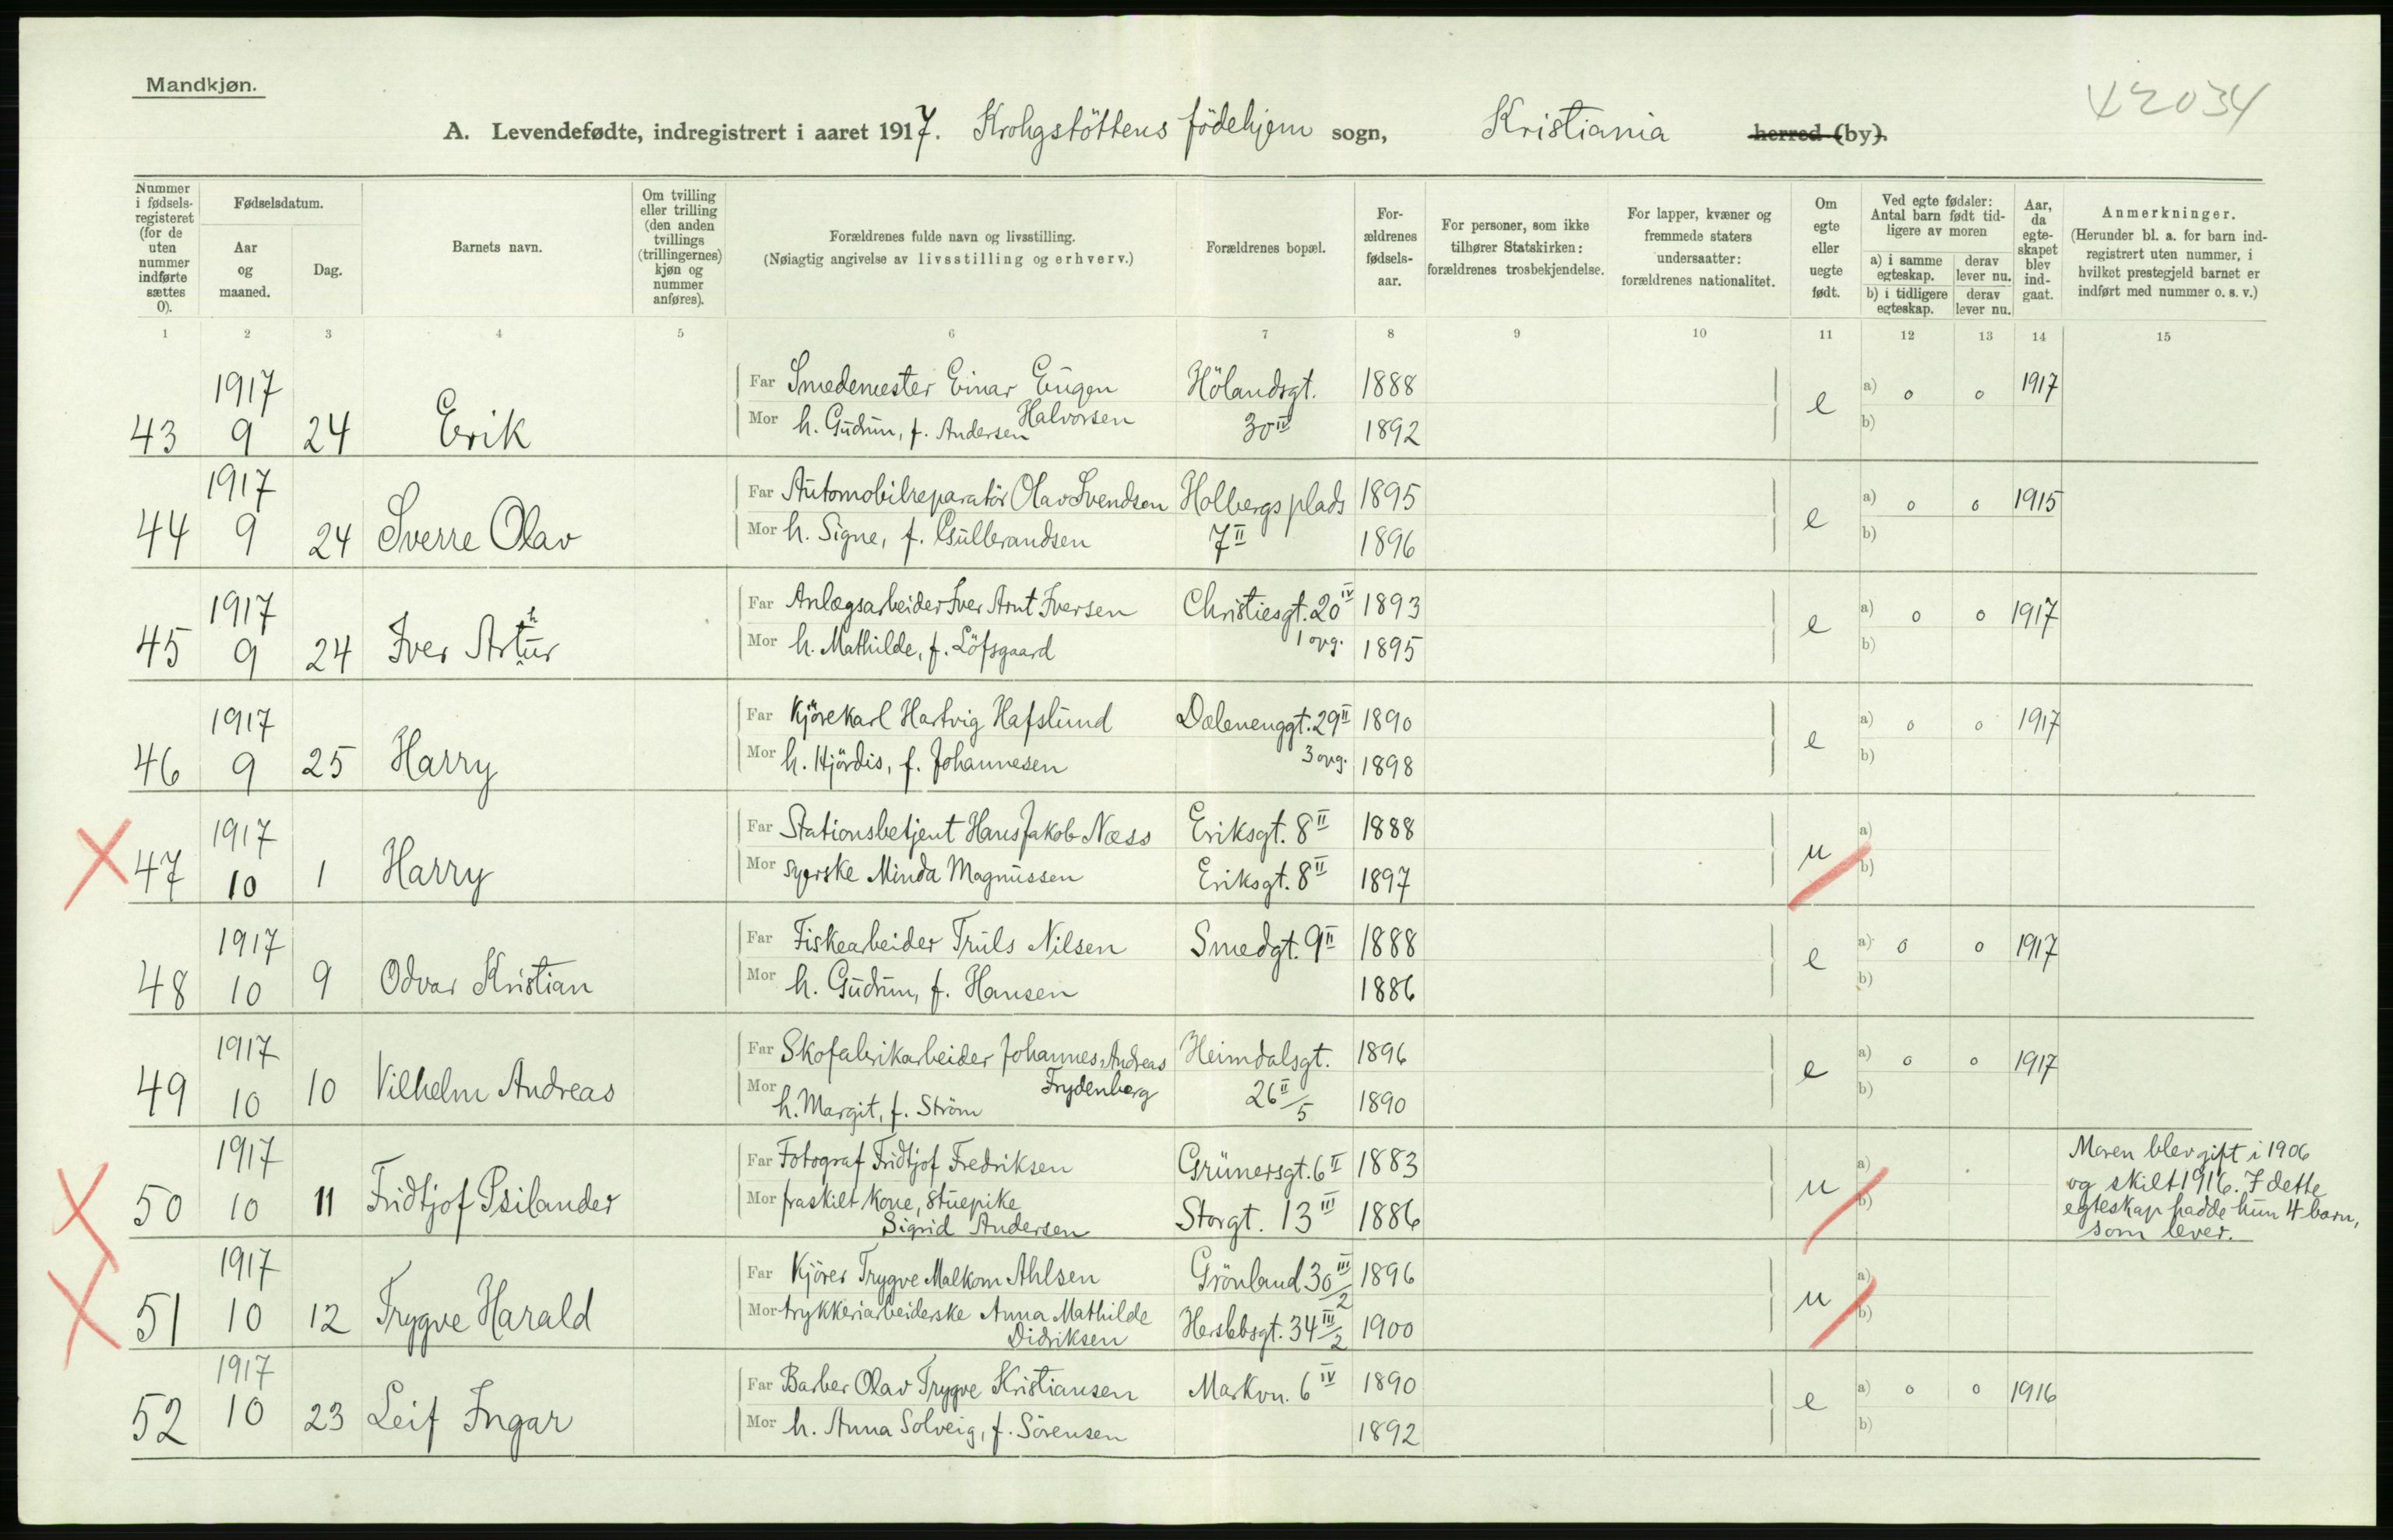 Mandkjøn.
42034
A. Levendefødte, indregistrert i aaret 1917. Krohgstöttens födehjem sogn, Kristiania herred (by).
Nummer i fødsels-registeret (for de uten nummer indførte sættes 0).
Fødselsdatum.
Aar og maaned.
Dag.
Barnets navn.
Om tvilling eller trilling (den anden tvillings (trillingernes) kjøn og nummer anføres).
Forældrenes fulde navn og livsstilling.
(Nøiagtig angivelse av livsstilling og erhverv.)
Forældrenes bopæl.
For-ældrenes fødsels-aar.
For personer, som ikke tilhører Statskirken: forældrenes trosbekjendelse.
For lapper, kvæner og fremmede staters undersaatter: forældrenes nationalitet.
Om egte eller uegte født.
Ved egte fødsler: Antal barn født tid-ligere av moren
a) i samme egteskap.
derav lever nu.
b) i tidligere egteskap.
derav lever nu.
Aar, da egte-skapet blev ind-gaat.
Anmerkninger.
(Herunder bl. a. for barn ind-registrert uten nummer, i hvilket prestegjeld barnet er indført med nummer o. s. v.)
1 2 3 4 5 6 7 8 9 10 11 12 13 14 15
1917 Far Smedemester Einar Eugen Hölandsgt. 1888 e a) 0 0 1917
Halvorsen
43 9 24 Erik Mor h. Gudrun, f. Andersen 30 IV 1892 b)
1917 Far Automobilreparatör Olav Svendsen Holbergs plads 1895 e a) 0 0 1915
44 9 24 Sverre Olav Mor h. Signe, f. Gulbrandsen 7 II 1896 b)
1917 Far Anlægsarbeider Iver Arnt Iversen Christiesgt. 20 IV 1893 e a) 0 0 1917
45 9 24 Iver Arthur Mor h. Mathilde, f. Löfsgaard 1 opg. 1895 b)
1917 Far Kjörekarl Hartvig Hafslund Dælenenggt. 29 II 1890 e a) 0 0 1917
46 9 25 Harry Mor h. Hjördis, f. Johannesen 3 opg. 1898 b)
1917 Far Stationsbetjent Hans Jakob Næss Eriksgt. 8 II 1888 u a)
47 10 1 Harry Mor syerske Minda Magnussen Eriksgt. 8 II 1897 b)
1917 Far Fiskearbeider Truls Nilsen Smedgt. 9 II 1888 e a) 0 0 1917
48 10 9 Odvar Kristian Mor h. Gudrun, f. Hansen 1886 b)
1917 Far Skofabrikarbeider Johannes Andreas Heimdalsgt. 1896 e a) 0 0 1917
Frydenberg
49 10 10 Vilhelm Andreas Mor h. Margit, f. Ström 26 II/5 1890 b)
1917 Far Fotograf Fridtjof Fredriksen Grünersgt. 6 II 1883 u a) Moren blev gift i 1906
50 10 11 Fridtjof Psilander Mor fraskilt kone, stuepike og skilt 1916. I dette
Sigrid Andersen Storgt. 13 III 1886 b) egteskap hadde hun 4 barn,
som lever.
1917 Far Kjörer Trygve Malkom Ahlsen Grönland 30 III/2 1896 u a)
51 10 12 Trygve Harald Mor trykkeriarbeiderske Anna Mathilde
Didriksen Herslebsgt. 34 III/2 1900 b)
1917 Far Barber Olav Trygve Kristiansen Markvn. 6 IV 1890 e a) 0 0 1916
52 10 23 Leif Ingar Mor h. Anna Solveig, f. Sörensen 1892 b)